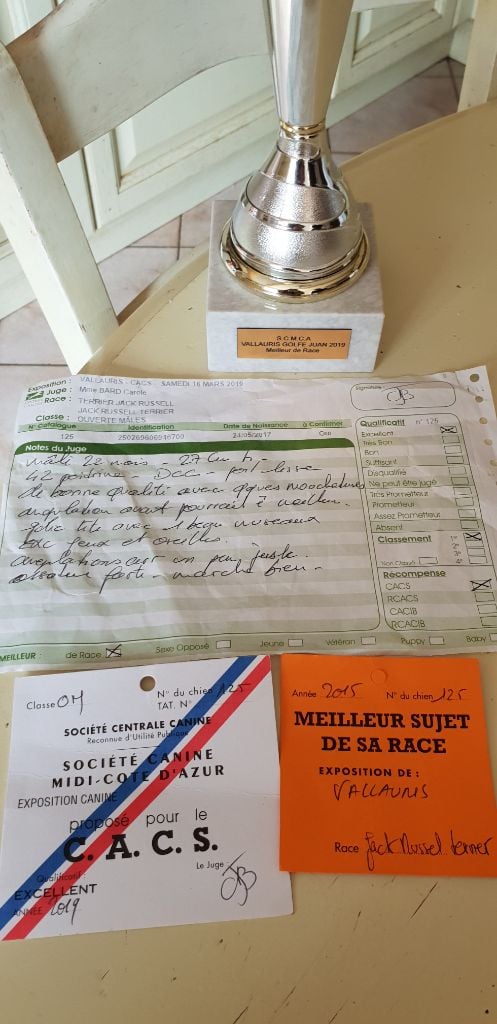 S.C.M.C.A
VALLAURIS GOLFE JUAN 2019
Meilleur de Race
Exposition : VALLAURIS - CACS - SAMEDI 16 MARS 2019
Juge : Mme BARD Carole
Race : TERRIER JACK RUSSELL
JACK RUSSELL TERRIER
Classe : OUVERTE MÂLES
Signature :
N° Catalogue Identification Date de Naissance à Confirmer
125 250269606916700 24/05/2017 Cen
Notes du Juge
mâle 22 mois - 27 cm
42 poitrine DCC - poil lisse
de bonne qualité avec
angulation avant pourrait
tête avec 1 beau museau
Exc yeux et oreilles.
angulations un peu juste
marche bien -
Qualificatif n° 125
Excellent
Très Bon
Bon
Suffisant
Disqualifié
Ne peut être jugé
Très Prometteur
Prometteur
Assez Prometteur
Absent
Classement
Non Classé
Récompense
CACS
RCACS
CACIB
RCACIB
MEILLEUR : de Race Sexe Opposé Jeune Vétéran Puppy Baby
Classe OM N° du chien 125
TAT. N°
SOCIÉTÉ CENTRALE CANINE
Reconnue d'Utilité Publique
SOCIÉTÉ CANINE
MIDI-COTE D'AZUR
EXPOSITION CANINE
proposé pour le
C. A. C. S.
Qualificatif
EXCELLENT
Le Juge :
ANNÉE 2019
Année 2015 N° du chien 125
MEILLEUR SUJET
DE SA RACE
EXPOSITION DE :
VALLAURIS
Race Jack Russel terrier